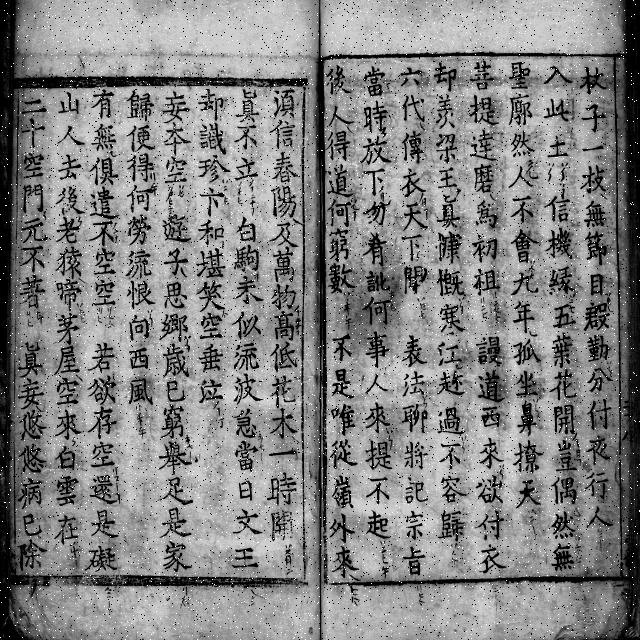 杖子一枝無節目慇勤分付夜行人
入此土 信機緣五葉花開豈偶然無
聖廓然人不會九年孤坐鼻撩天
菩提達磨為初祖 謾道西來欲付衣
却羨梁王真慷慨寒江赴過不容歸
六代傳衣天下聞 表法聊將記宗旨
當時放下勿肴訛何事人來提不起
後人得道何窮數 不是唯從嶺外來
須信春陽及萬物高低花木一時開
真不立 白駒未似流波急當日文王
却識珍卞和堪笑空垂泣
妄本空 遊子思鄉歲已窮舉足是家
歸便得何勞流恨向西風
有無俱遣不空空 若欲存空還是礙
山人去後老猿啼茅屋空來白雲在
二十空門元不著 真妄悠悠病已除